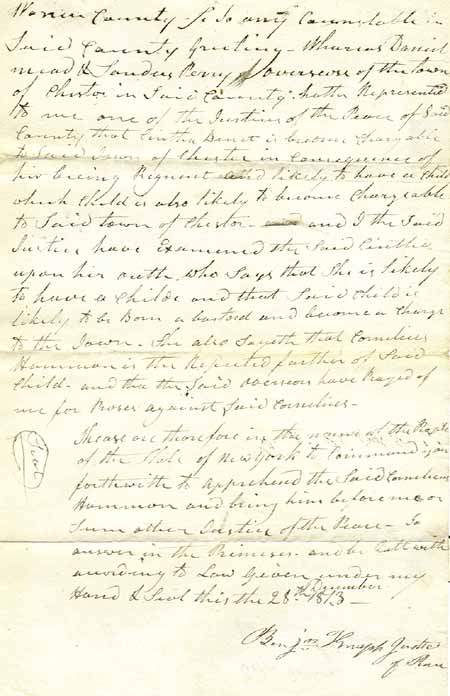 Warren County Ss To any Counstable in
Said County Greeting - Whareas Daniel
mead & Sanders Perry overseors of the town
of Chestor in Said County hath Represented
to me one of the Justices of the Peace of Said
County that Cintha is become Chargable
to Said Town of Chester in Consequence of
hir being Regnent and likely to have a Child
which Child is also likely to become Chargeable
to Said town of Chestor and I the Said
Justice have Examened the Said Cinthia
upon hir outh who Says that She is likely
to have a Childe and that Said Child is
likely to be Born a bastod and become a Charge
to the Town. She also Sayeth that Cornelius
Hammon is the Reputed farther of Said
Child- and tha the Said overseors have Prayed of
me for Proses against Said Cornelius-
Thease are therefore in the name of the People
of the State of New York to Command you
forthwith to Apprehend the Said Cornelius
Hammon and bring him before me or
Sum other Justice of the Peace- To
answer in the Primeses- and be dalt with
acording to Law Given under my
Hand & Seol this the 28th December 1813-
Seol
Benjn Knapp Justice
of Peace